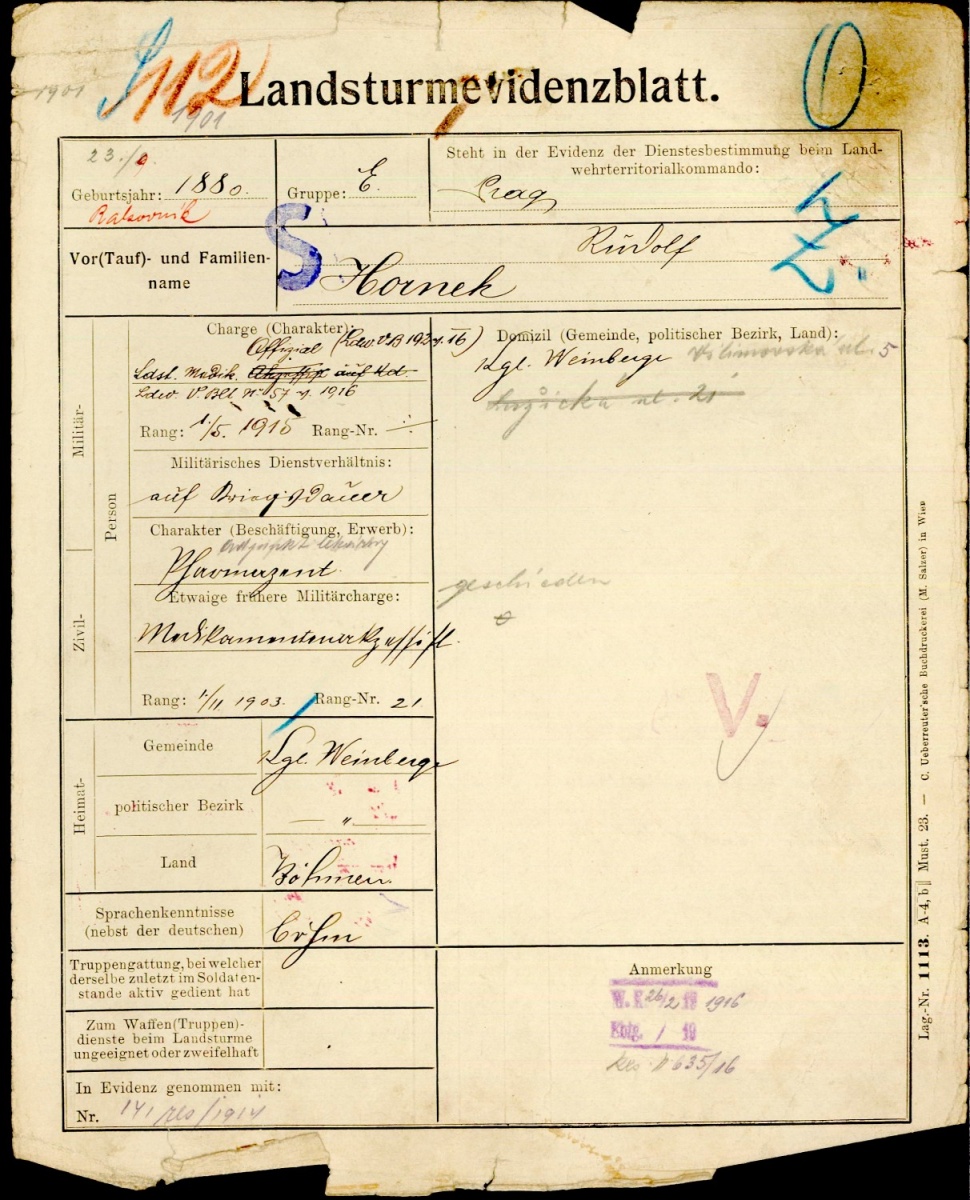 1901
112
1901
Landsturmevidenzblatt.
23./9.
Geburtsjahr: 1880.
Rakovník
Gruppe: E.
Steht in der Evidenz der Dienstesbestimmung beim Land-
wehrterritorialkommando:
Prag
Vor(Tauf)- und Familien-
name
S
Rudolf
Hornek
Militär-
Zivil-
Person
Charge (Charakter):
Offizial
Ldst. Medik. auf Kd.
Ldw. V. Blt Nr 57 v. 1916
Rang: 1./5. 1915 Rang-Nr.
Militärisches Dienstverhältnis:
auf Kriegsdauer
Charakter (Beschäftigung, Erwerb):
Pharmazeut.
Etwaige frühere Militärcharge:
Medikamentenakzessist.
Rang: 1/11 1903. Rang-Nr. 21.
Domizil (Gemeinde, politischer Bezirk, Land):
Kgl. Weinberge ul. 5
ul. 21
geschieden
V.
Heimat-
Gemeinde
Kgl. Weinberge
politischer Bezirk
— „ —
Land
Böhmen.
Sprachenkenntnisse
(nebst der deutschen)
Böhm
Truppengattung, bei welcher
derselbe zuletzt im Soldaten-
stande aktiv gedient hat
Zum Waffen(Truppen)-
dienste beim Landsturme
ungeeignet oder zweifelhaft
In Evidenz genommen mit:
Nr. 141 res/1914
Anmerkung
26/2 1916
635/16
Lag.-Nr. 1113. A-4, b || Must. 23. — C. Ueberreuter'sche Buchdruckerei (M. Salzer) in Wien